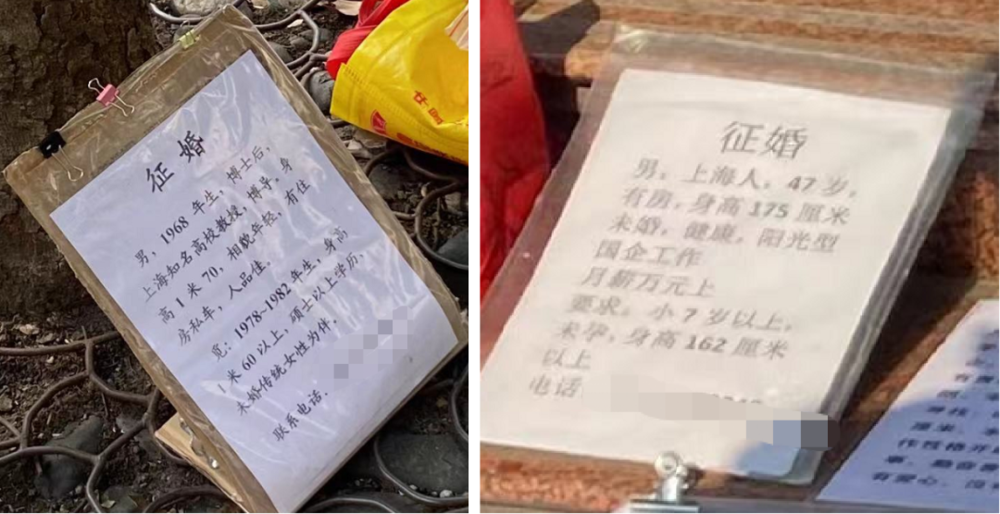 征婚
男，1968年生，博士后，
上海知名高校教授，博导，身
高1米70，相貌年轻，有住
房私车，人品佳。
觅：1978-1982年生，身高
1米60以上，硕士以上学历，
未婚传统女性为伴。
联系电话：
征婚
男，上海人，47岁，
有房，身高175厘米
未婚，健康，阳光型
国企工作
月薪万元上
要求：小7岁以上，
未孕，身高162厘米
以上
电话
作性格开
有爱心，